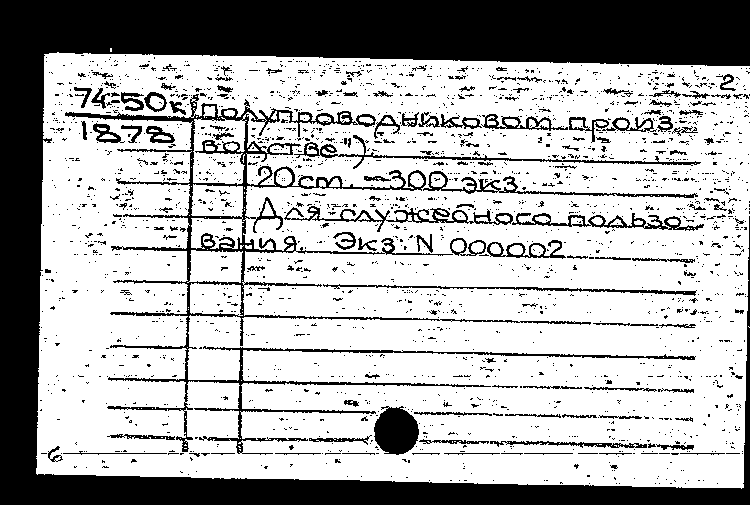 2
74-50к полупроводниковом произ
1878 водстве")
20 ст. - 300 экз.
Для служебного пользо-
вания. Экз. N 000002
6